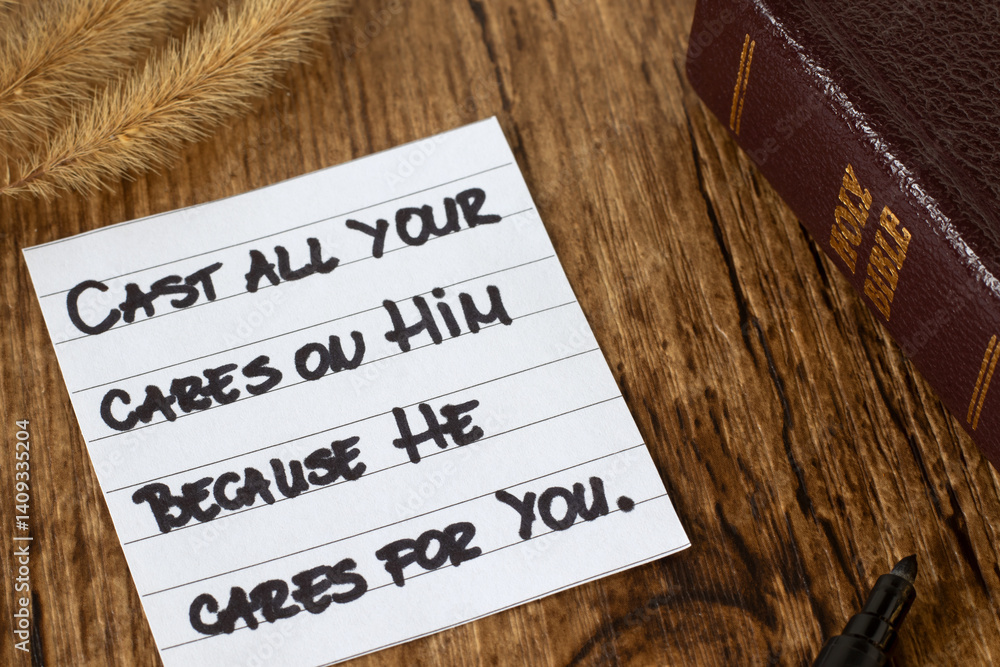 Cast all your
cares on Him
because He
cares for you.
HOLY
BIBLE
Adobe Stock | #1409335204